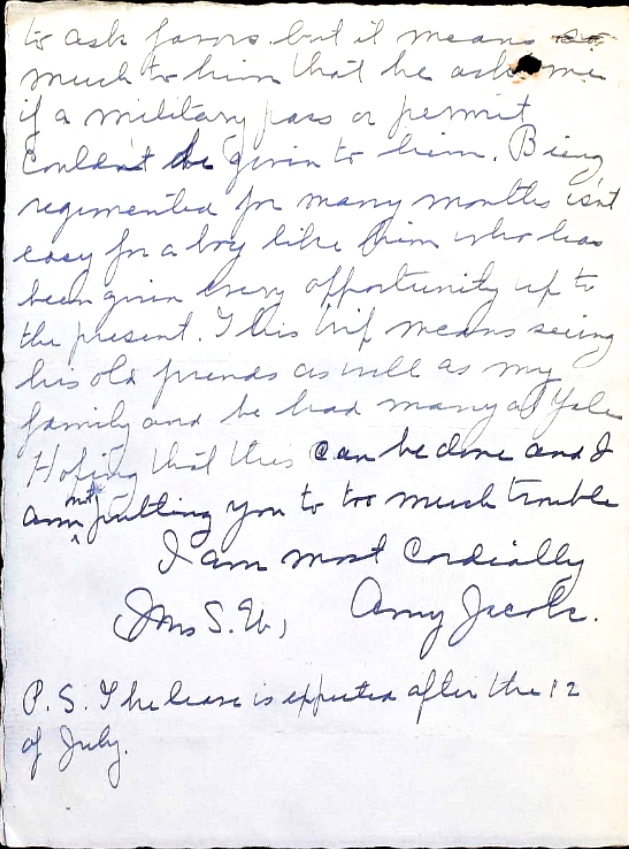 to ask favors but it means so
much to him that he asked me
if a military pass or permit
couldn't be given to him. Being
regimented for many months isn't
easy for a boy like him who has
been given every opportunity up to
the present. This trip means seeing
his old friends as well as my
family and he had many at Yale
Hoping that this can be done and I
am not putting you to too much trouble
I am most cordially
(Mrs S. W.) Amy Jacobs.
P.S. The leave is expected after the 12
of July.